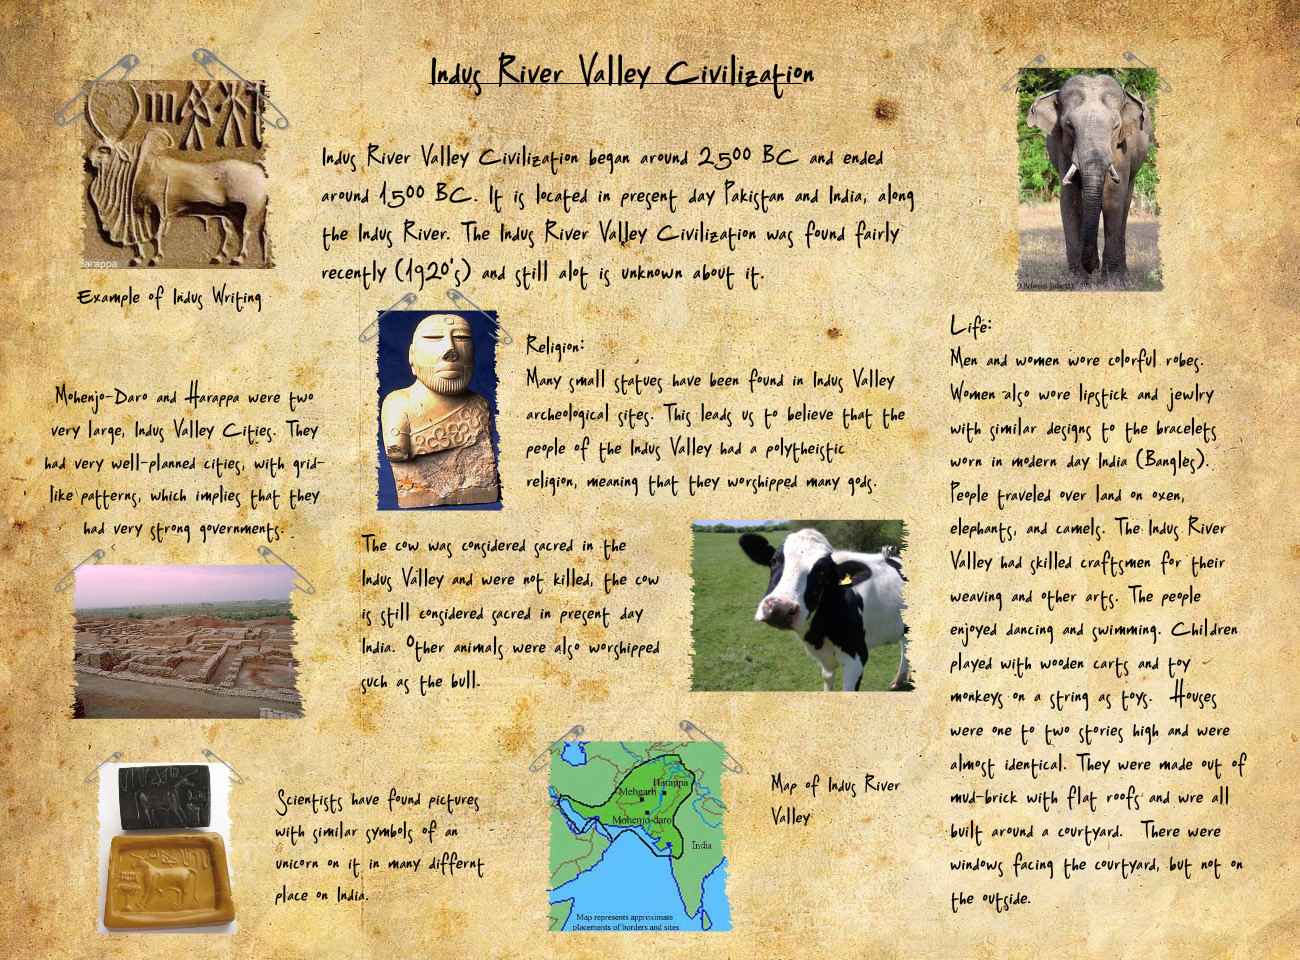 Indus River Valley Civilization
Indus River Valley Civilization began around 2500 BC and ended
around 1500 BC. It is located in present day Pakistan and India, along
the Indus River. The Indus River Valley Civilization was found fairly
recently (1920's) and still alot is unknown about it.
arappa
Example of Indus Writing
Mohenjo-Daro and Harappa were two
very large, Indus Valley Cities. They
had very well-planned cities, with grid-
like patterns, which implies that they
had very strong governments.
Religion:
Many small statues have been found in Indus Valley
archeological sites. This leads us to believe that the
people of the Indus Valley had a polytheistic
religion, meaning that they worshipped many gods.
The cow was considered sacred in the
Indus Valley and were not killed, the cow
is still considered sacred in present day
India. Other animals were also worshipped
such as the bull.
Scientists have found pictures
with similar symbols of an
unicorn on it in many differnt
place on India.
Harappa
Mehgarh
Mohenjo-daro
India
Map represents approximate
placements of borders and sites
Map of Indus River
Valley
Life:
Men and women wore colorful robes.
Women also wore lipstick and jewlry
with similar designs to the bracelets
worn in modern day India (Bangles).
People traveled over land on oxen,
elephants, and camels. The Indus River
Valley had skilled craftsmen for their
weaving and other arts. The people
enjoyed dancing and swimming. Children
played with wooden carts and toy
monkeys on a string as toys. Houses
were one to two stories high and were
almost identical. They were made out of
mud-brick with flat roofs and wre all
built around a courtyard. There were
windows facing the courtyard, but not on
the outside.